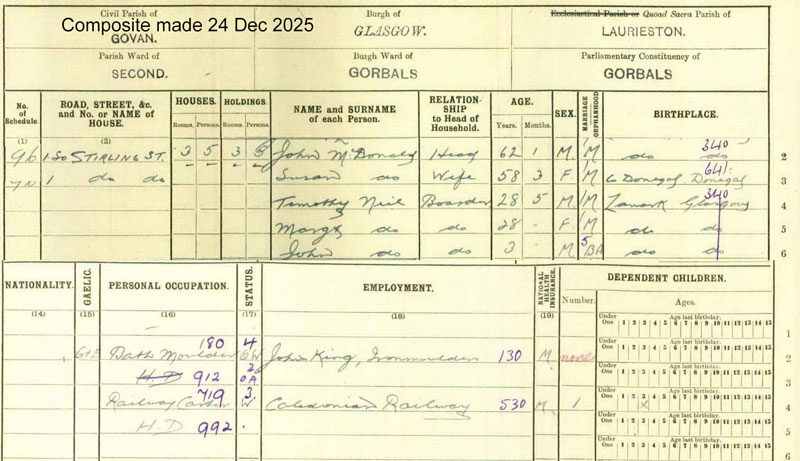 Civil Parish of
GOVAN.
Composite made 24 Dec 2025
Burgh of
GLASGOW.
Ecclesiastical Parish or Quoad Sacra Parish of
LAURIESTON.
Parish Ward of
SECOND.
Burgh Ward of
GORBALS
Parliamentary Constituency of
GORBALS
No. of Schedule. (1)
ROAD, STREET, &c. and No. or NAME of HOUSE. (2)
HOUSES. Rooms. Persons.
HOLDINGS. Rooms. Persons.
NAME and SURNAME of each Person.
RELATIONSHIP to Head of Household.
AGE. Years. Months.
SEX.
MARRIAGE or ORPHANHOOD
BIRTHPLACE.
96 150 STIRLING ST. 3 5 3 5 John McDonald Head 62 1 M. M do do 340 2
1 do do Susan do Wife 58 3 F M Co Donegal, Donegal 641 3
Timothy Neil Boarder 28 5 M M Lanark Glasgow 340 4
Margt do do 28 . F M do do 5
John do do 3 M 5 BA do do 6
NATIONALITY. (14)
GAELIC. (15)
PERSONAL OCCUPATION. (16)
STATUS. (17)
EMPLOYMENT. (18)
NATIONAL HEALTH INSURANCE. (19)
DEPENDENT CHILDREN.
Number.
Ages.
Under One Age last birthday. 1 2 3 4 5 6 7 8 9 10 11 12 13 14 15 1
G+E Bath Moulder 180 4 W John King, Ironmoulder 130 M none 2
Under One Age last birthday. 1 2 3 4 5 6 7 8 9 10 11 12 13 14 15
H.D 912 3
Under One Age last birthday. 1 2 3 4 5 6 7 8 9 10 11 12 13 14 15
Railway Carter 719 3 W Caledonian Railway 530 M. 1 X 4
Under One Age last birthday. 1 2 3 4 5 6 7 8 9 10 11 12 13 14 15
H.D 992. 5
Under One Age last birthday. 1 2 3 4 5 6 7 8 9 10 11 12 13 14 15
6